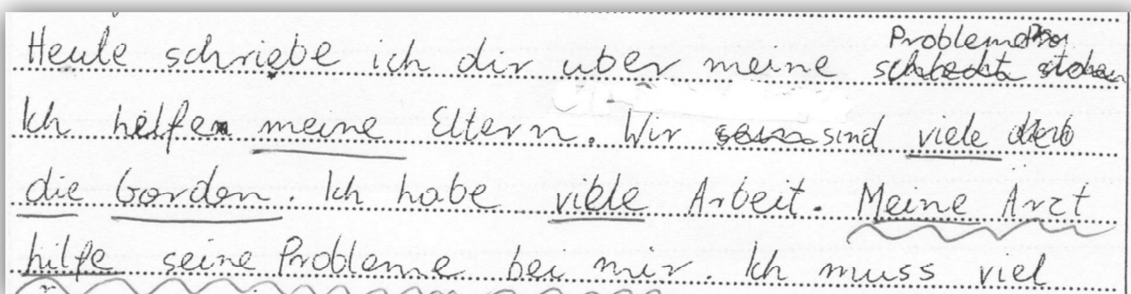 Probleme
Heute schriebe ich dir uber meine
Ich helfen meine Eltern. Wir sind viele
die Gorden. Ich habe viele Arbeit. Meine Arzt
hilfe seine Probleme bei mir. Ich muss viel